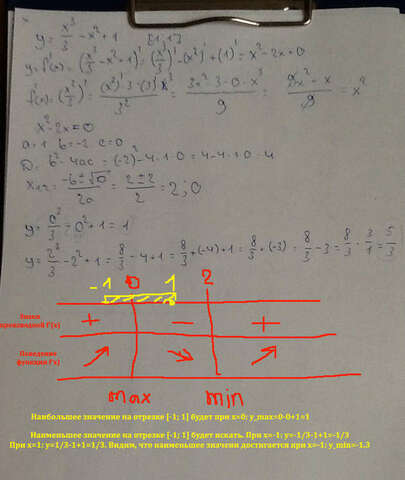 y = x³/3 - x² + 1 [-1; 1]
y' = f'(x) = (x³/3 - x² + 1)' = (x³/3)' - (x²)' + (1)' = x² - 2x + 0
f'(x) = (x³/3)' = ((x³)' · 3 - (3)' · x³)/3² = (3x² · 3 - 0 · x³)/9 = = x²
x² - 2x = 0
a = 1 b = -2 c = 0
D = b² - 4ac = (-2)² - 4 · 1 · 0 = 4 - 4 · 1 · 0 = 4
x₁,₂ = (-b ± √D)/2a = (2 ± 2)/2 = 2; 0
y = 0³/3 - 0² + 1 = 1
y = 2³/3 - 2² + 1 = 8/3 - 4 + 1 = 8/3 + (-4) + 1 = 8/3 + (-3) = 8/3 - 3 = 8/3 · 3/1 = 5/3
-1 0 1 2
Знаки
производной F'(x)
+ - +
Поведение
функции F(x)
max min
Наибольшее значение на отрезке [-1; 1] будет при x=0; y_max=0-0+1=1
Наименьшее значение на отрезке [-1; 1] будет искать. При x=-1; y=-1/3-1+1=-1/3
При x=1; y=1/3-1+1=1/3. Видим, что наименьшее значени достигается при x=-1; y_min=-1.3